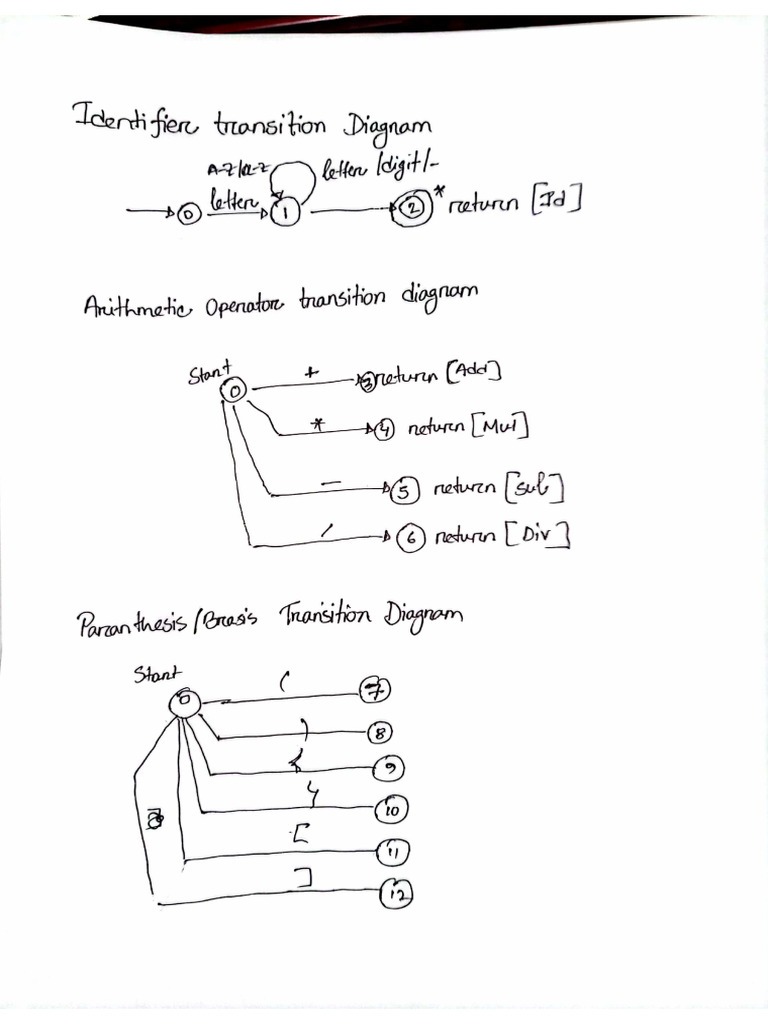 Identifier transition Diagram
A-Z/a-z letter /digit/-
letter
0 1 2 * return [Id]
Arithmetic Operator transition diagram
Start
0 + 3 return [Add]
* 4 return [Mul]
- 5 return [Sub]
/ 6 return [Div]
Paranthesis/Brasis Transition Diagram
Start
0 ( 7
) 8
{ 9
} 10
[ 11
] 12